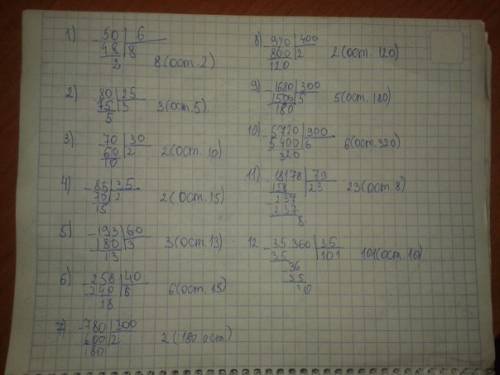 1) 50 | 6
48 | 8
2
8 (ост. 2)
2) 80 | 25
75 | 3
5
3 (ост. 5)
3) 70 | 30
60 | 2
10
2 (ост. 10)
4) 85 | 35
70 | 2
15
2 (ост. 15)
5) 193 | 60
180 | 3
13
3 (ост. 13)
6) 258 | 40
240 | 6
18
6 (ост. 15)
7) 780 | 300
600 | 2
180
2 (180 ост)
8) 920 | 400
800 | 2
120
2 (ост. 120)
9) 1680 | 300
1500 | 5
180
5 (ост. 180)
10) 5720 | 900
5400 | 6
320
6 (ост. 320)
11) | 79
158 | 23
237
8
23 (ост. 8)
12 35 360 | 35
35 | 101
36
35
10
101 (ост. 10)